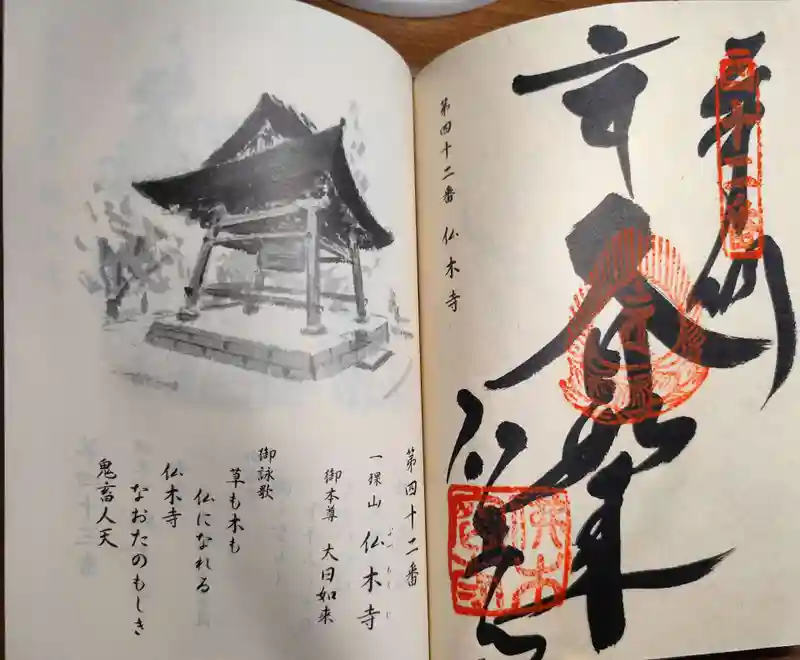 奉納
四十二番
大日如来
仏木寺
第四十二番 仏木寺
第四十二番
一山 仏木寺
御本尊 大日如来
御詠歌
草も木も
仏になれる
仏木寺
なおたのもしき
鬼畜人天